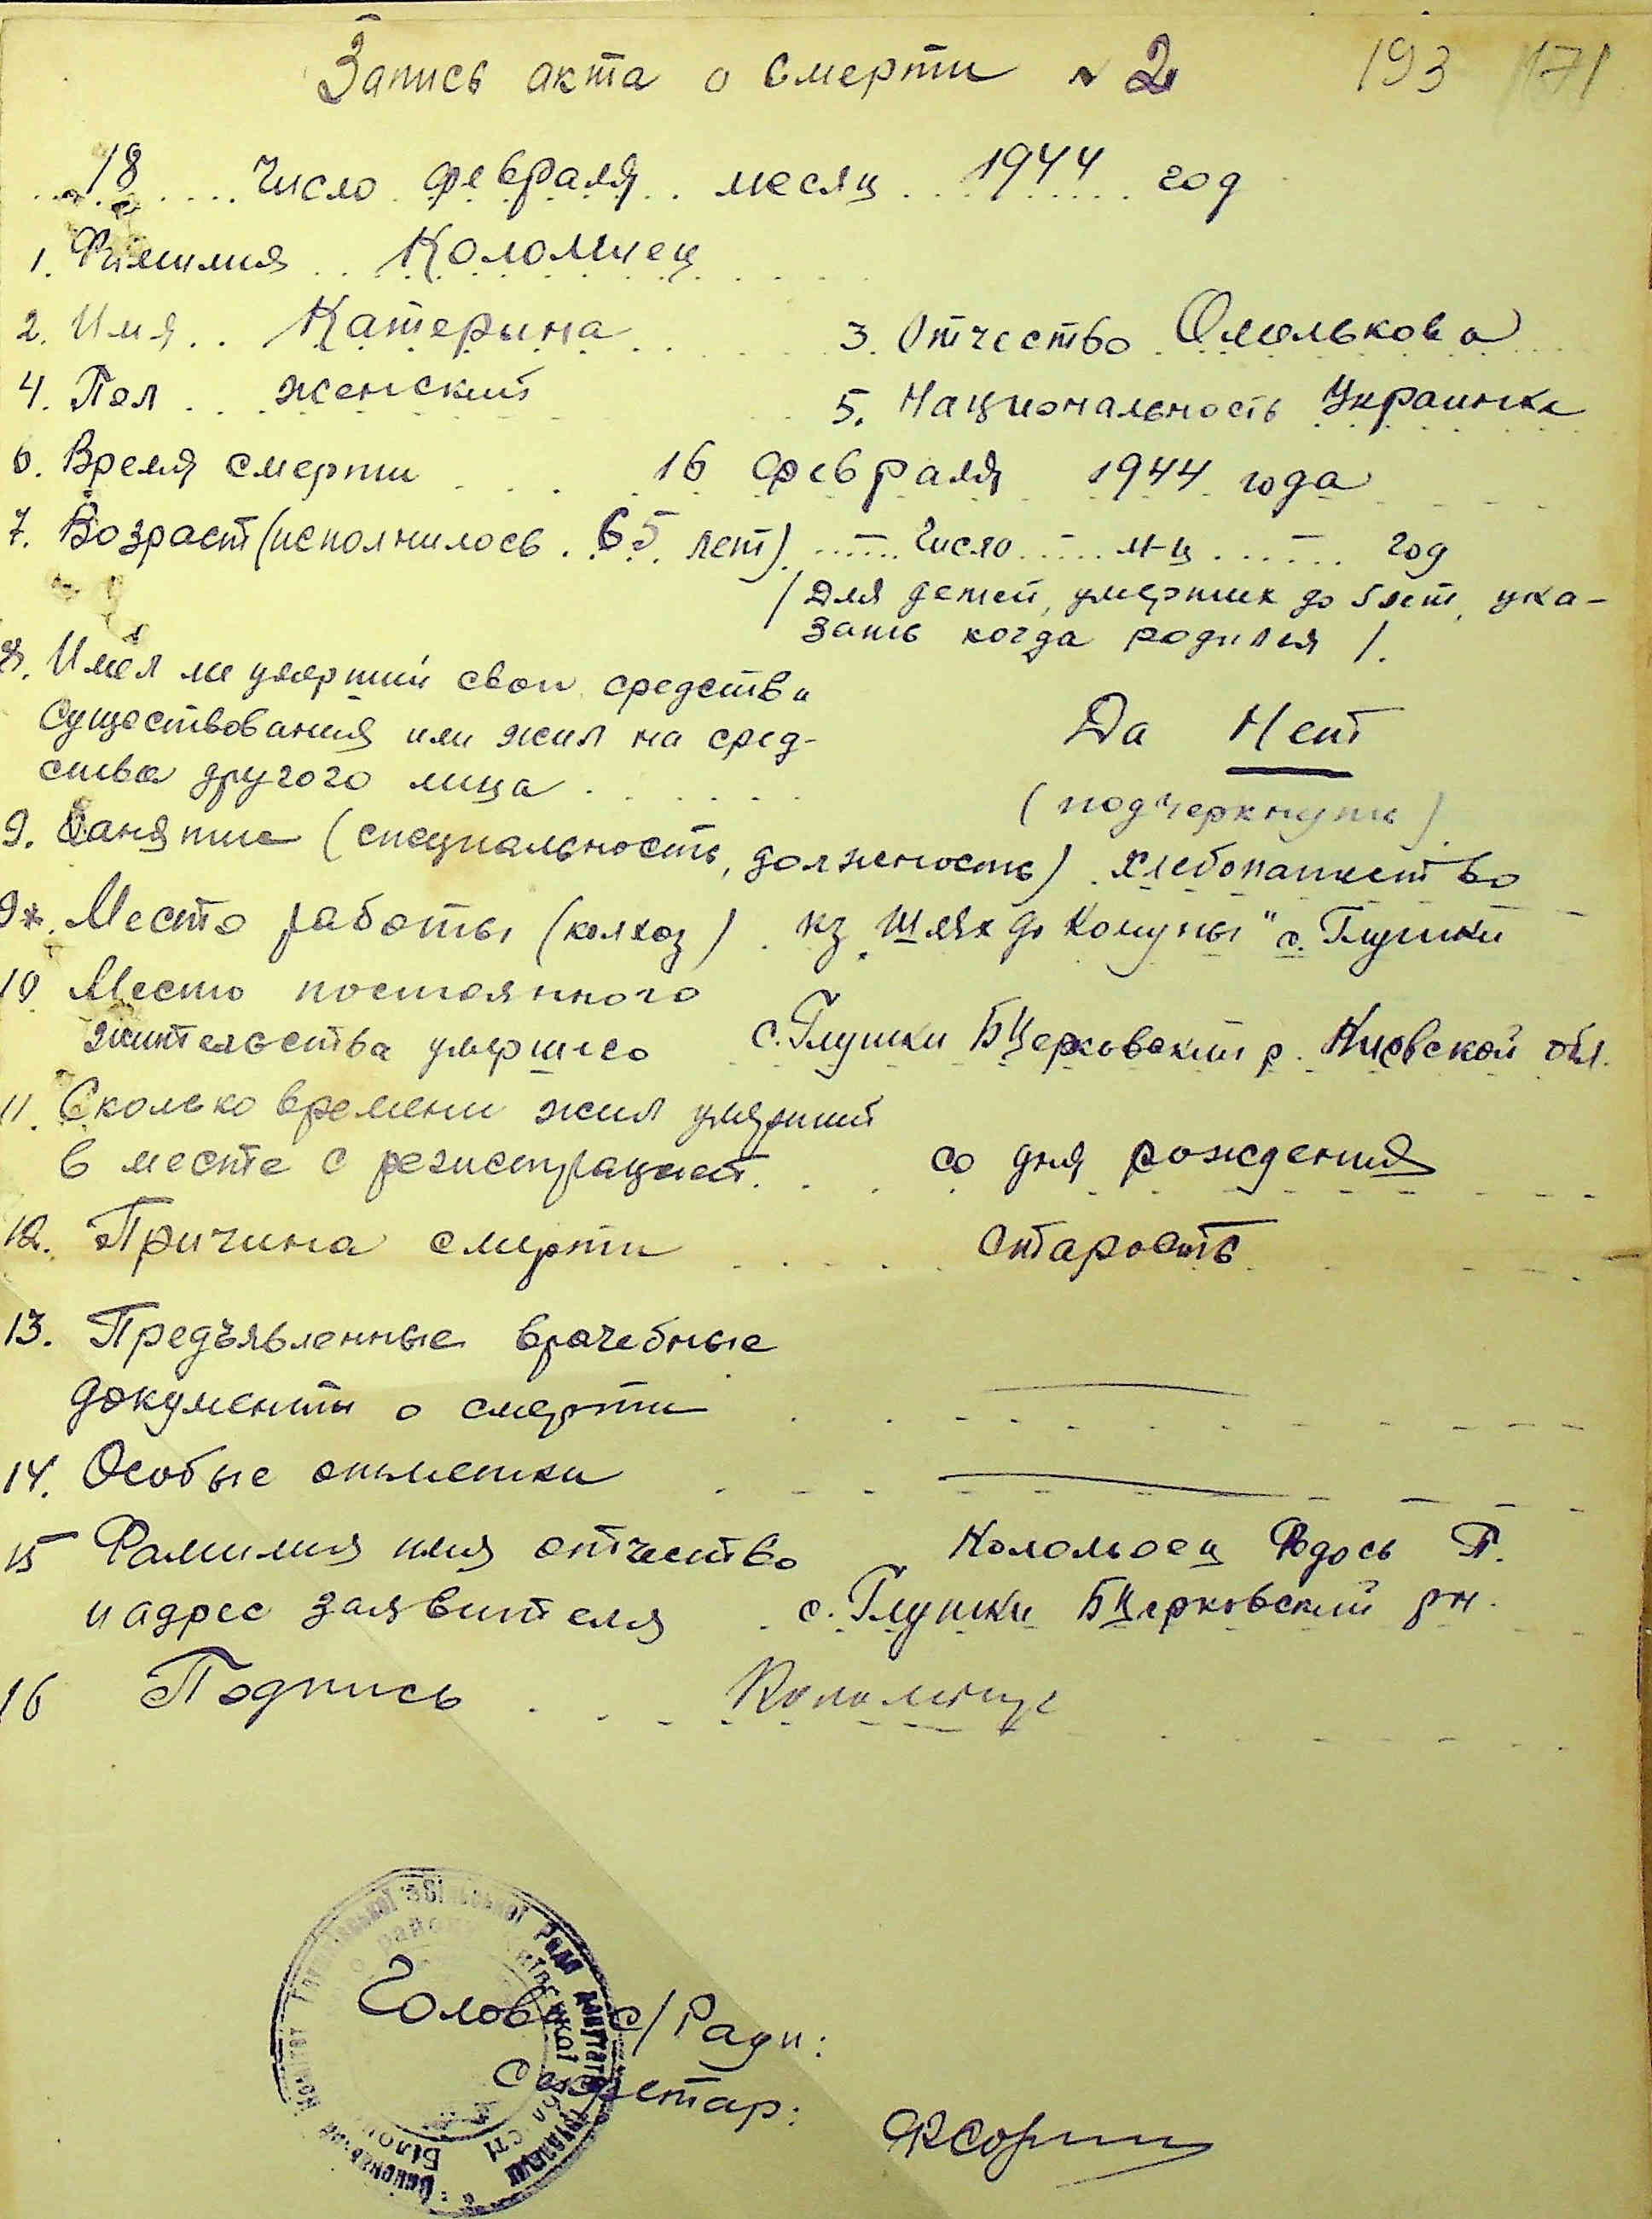 Запись акта о смерти № 2 193 171
18 число февраля месяц 1944 год
1. Фамилия Коломиец
2. Имя Катерина 3. Отчество Омельковa
4. Пол женский 5. Национальность Украинка
6. Время смерти 16 февраля 1944 года
7. Возраст (исполнилось 65 лет) число м-ц год
/ Для детей, умерших до 5 лет, ука-
зать когда родился /.
8. Имел ли умерший свои средства
существования или жил на сред-
ства другого лица Да Нет
(подчеркнуть)
9. Занятие (специальность, должность) хлебопашество
9*. Место работы (колхоз) кз „Шлях до Комуны" с. Глушки
10 Место постоянного
жительства умершего с. Глушки БЦерковский р. Киевской обл.
11. Сколько времени жил умерший
в месте с регистрацией со дня рождения
12. Причина смерти старость
13. Предъявленные врачебные
документы о смерти
14. Особые отметки
15 Фамилия имя отчество Коломоец Фодось П.
и адрес заявителя с. Глушки БЦерковский рн.
16 Подпись
Голова с/Ради:
Секретар: